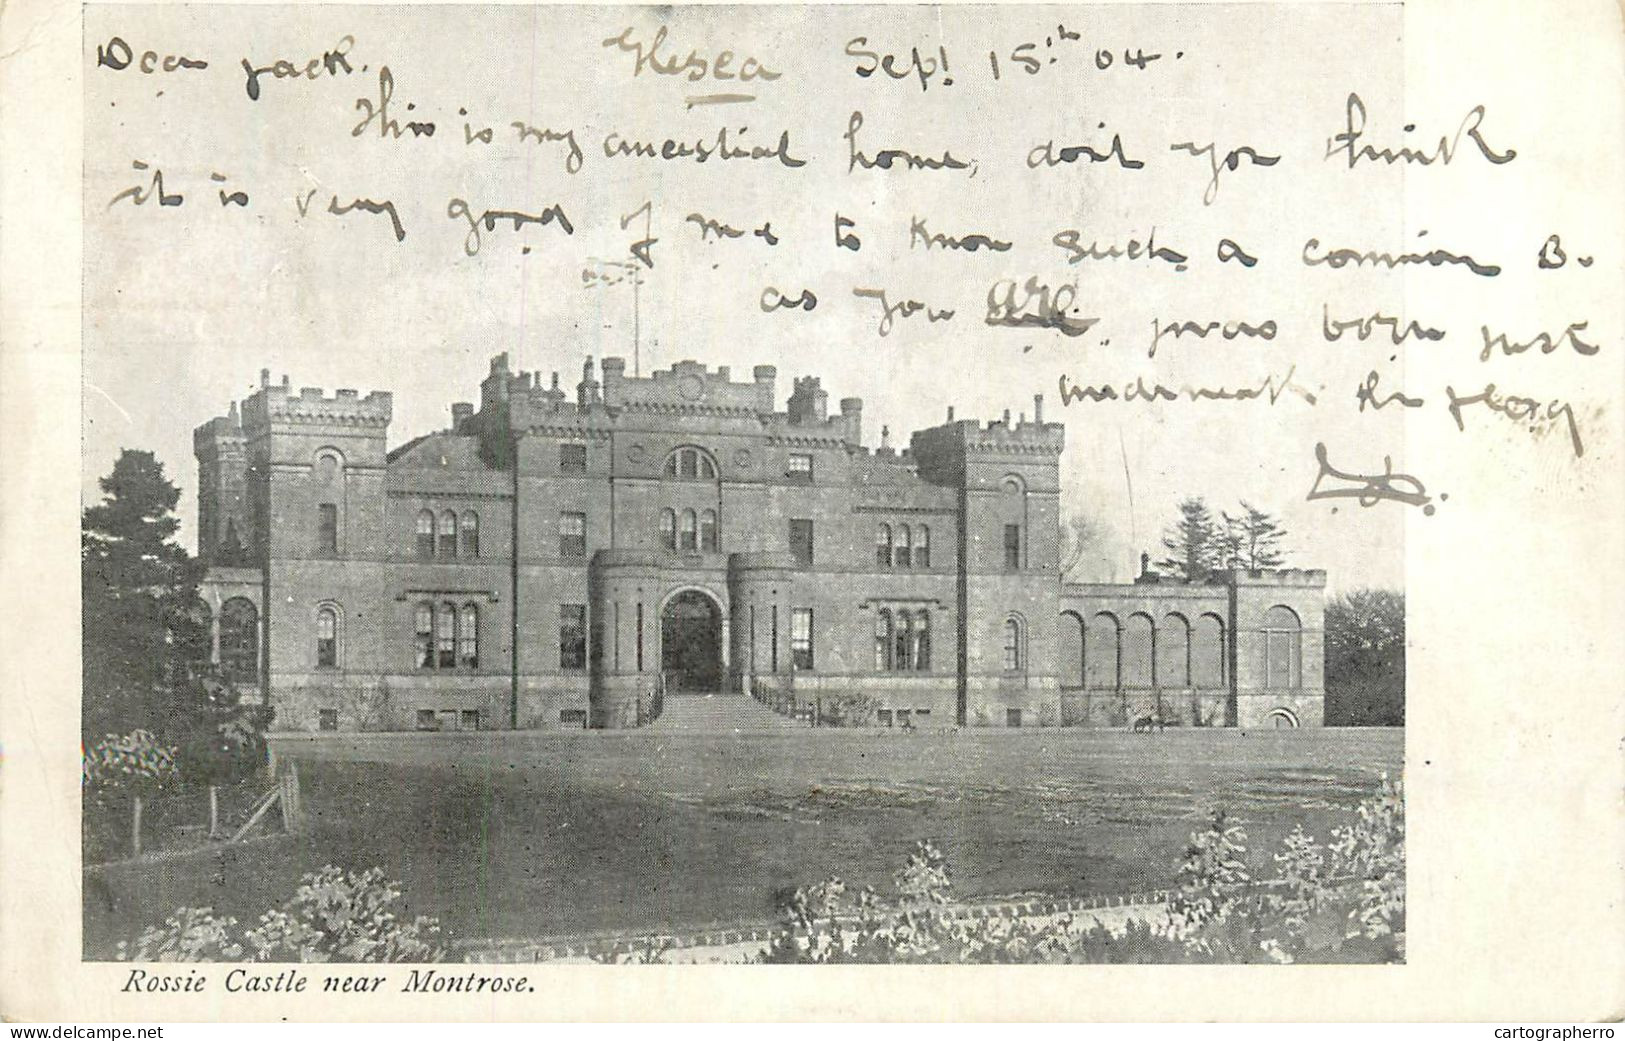 Dear Jack. Glesca Sep! 15th 04.
This is my ancestial home, dont you think
it is very good of me to know such a common B.
as you are. I was born just
underneath the flag
Rossie Castle near Montrose.
delcampe.net
cartographerro